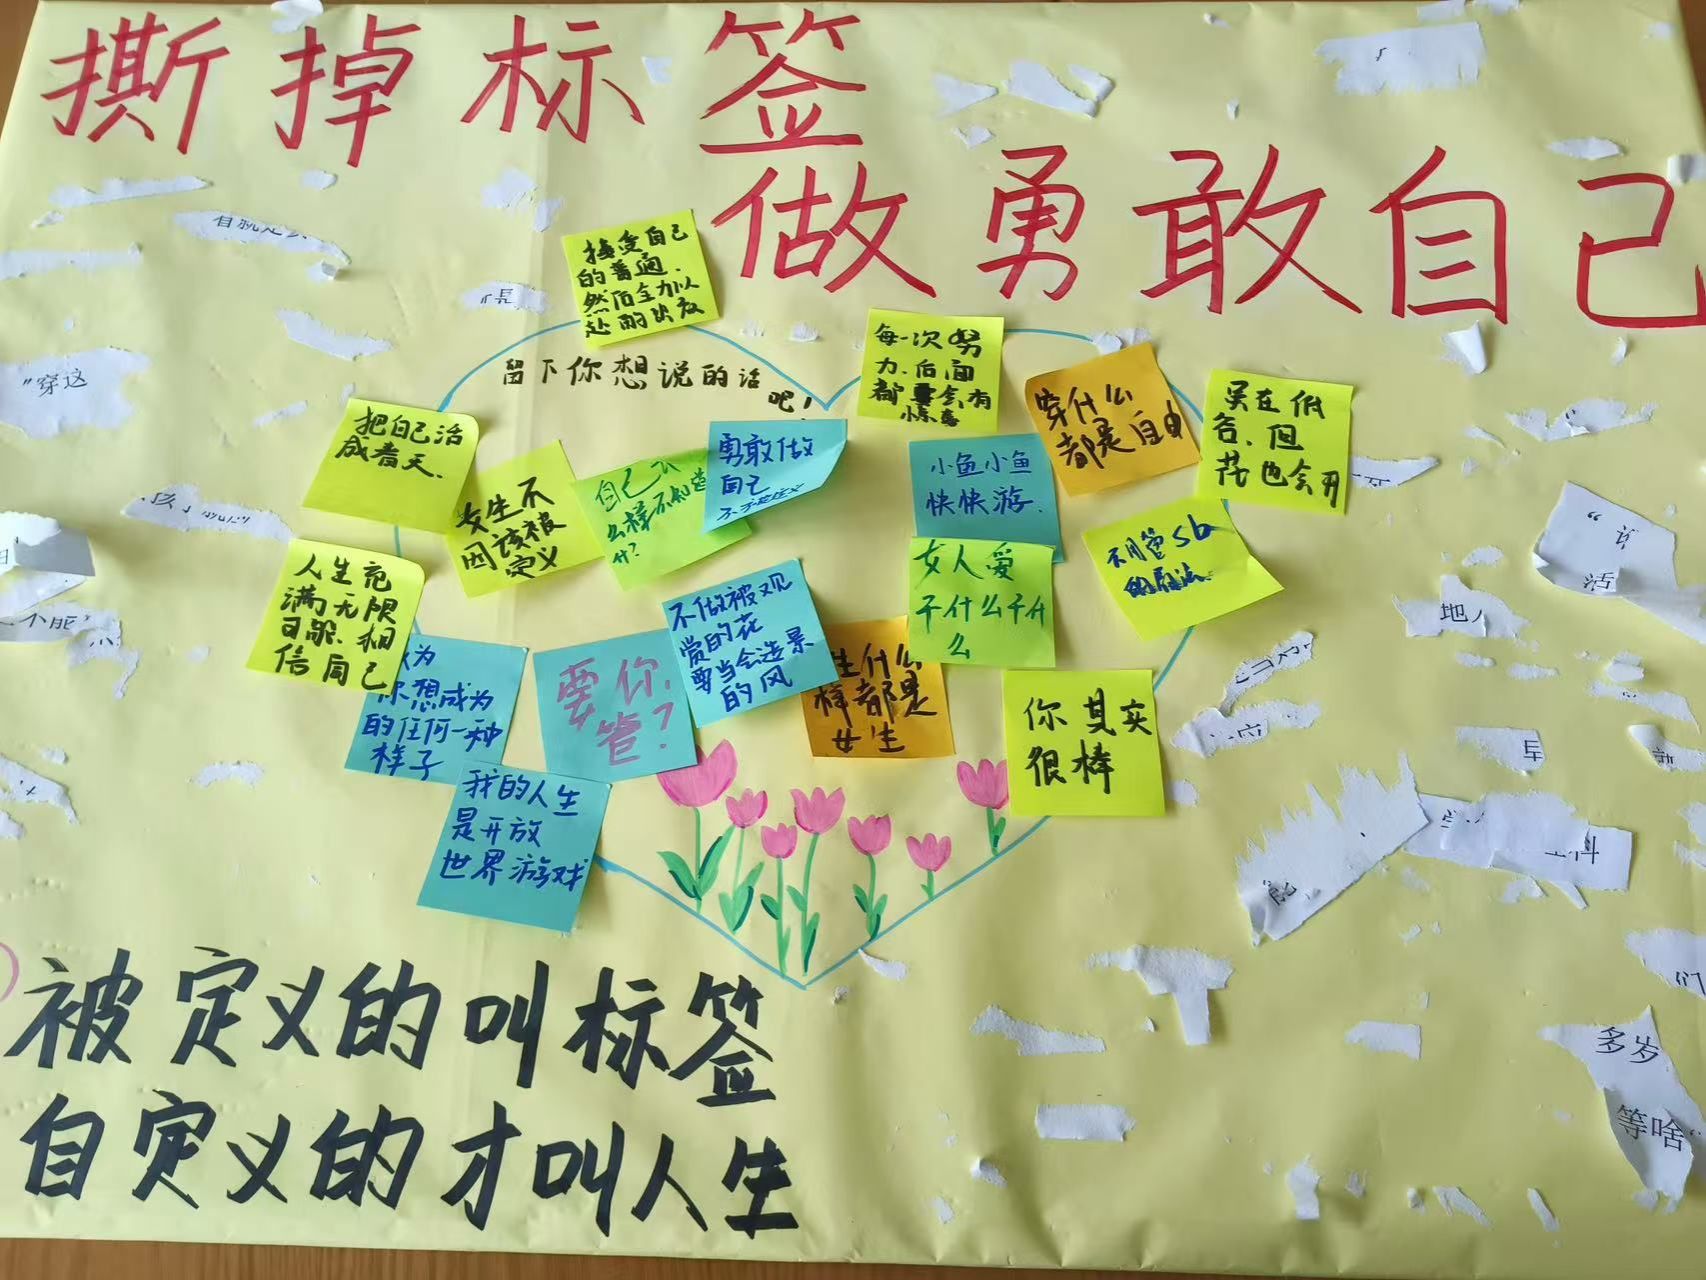 撕掉标签
做勇敢自己
接受自己
的普通.
然后全力以
赴的出发
留下你想说的话
吧!
每一次努
力,后面
都会有
小惊喜
穿什么
都是自由
吴在低
谷,但
花也会开
把自己活
成春天.
女生不
因该被
定义
自己什
么样不知道
吗?
勇敢做
自己
小鱼小鱼
快快游.
不用管sb
的看法.
人生充
满无限
可能.相
信自己
成为
你想成为
的任何一种
样子
要你
管?
不做被观
赏的花
要当会造景
的风
生什么
样都是
女生
女人爱
干什么干什
么
你其实
很棒
我的人生
是开放
世界游戏
被定义的叫标签
自定义的才叫人生
"穿这
地
活
多岁
等啥"